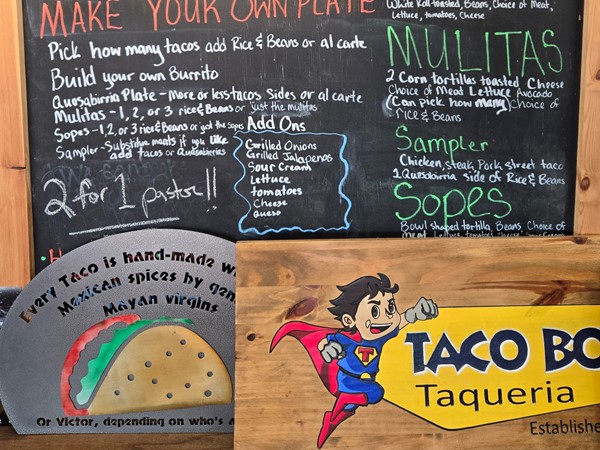 MAKE YOUR OWN PLATE
Pick how many tacos add Rice & Beans or al carte
Build your own Burrito
Quesabirria Plate - more or less tacos sides or al carte
Mulitas - 1, 2, or 3 rice & Beans or just the mulitas
Sopes - 1, 2, or 3 rice & Beans or just the sopes
Sampler - Substitue meats if you like
add tacos or Quesabirrias
2 for 1 pastor!!
Add Ons
Grilled Onions
Grilled Jalapenos
Sour Cream
Lettuce
tomatoes
Cheese
Queso
White Roll toasted, Beans, Choice of Meat,
Lettuce, tomatoes, Cheese
MULITAS
2 Corn tortillas toasted Cheese
Choice of Meat Lettuce Avocado
(Can pick how many) Choice of
Rice & Beans
Sampler
Chicken, steak, Pork street taco
1 Quesabirria side of Rice & Beans
Sopes
Bowl shaped tortilla, Beans, Choice of
Meat, Lettuce, tomatoes, Cheese
Every Taco is hand-made
Mexican spices by
Mayan virgins
Or Victor, depending on who's
T
TACO BO
Taqueria
Establishe